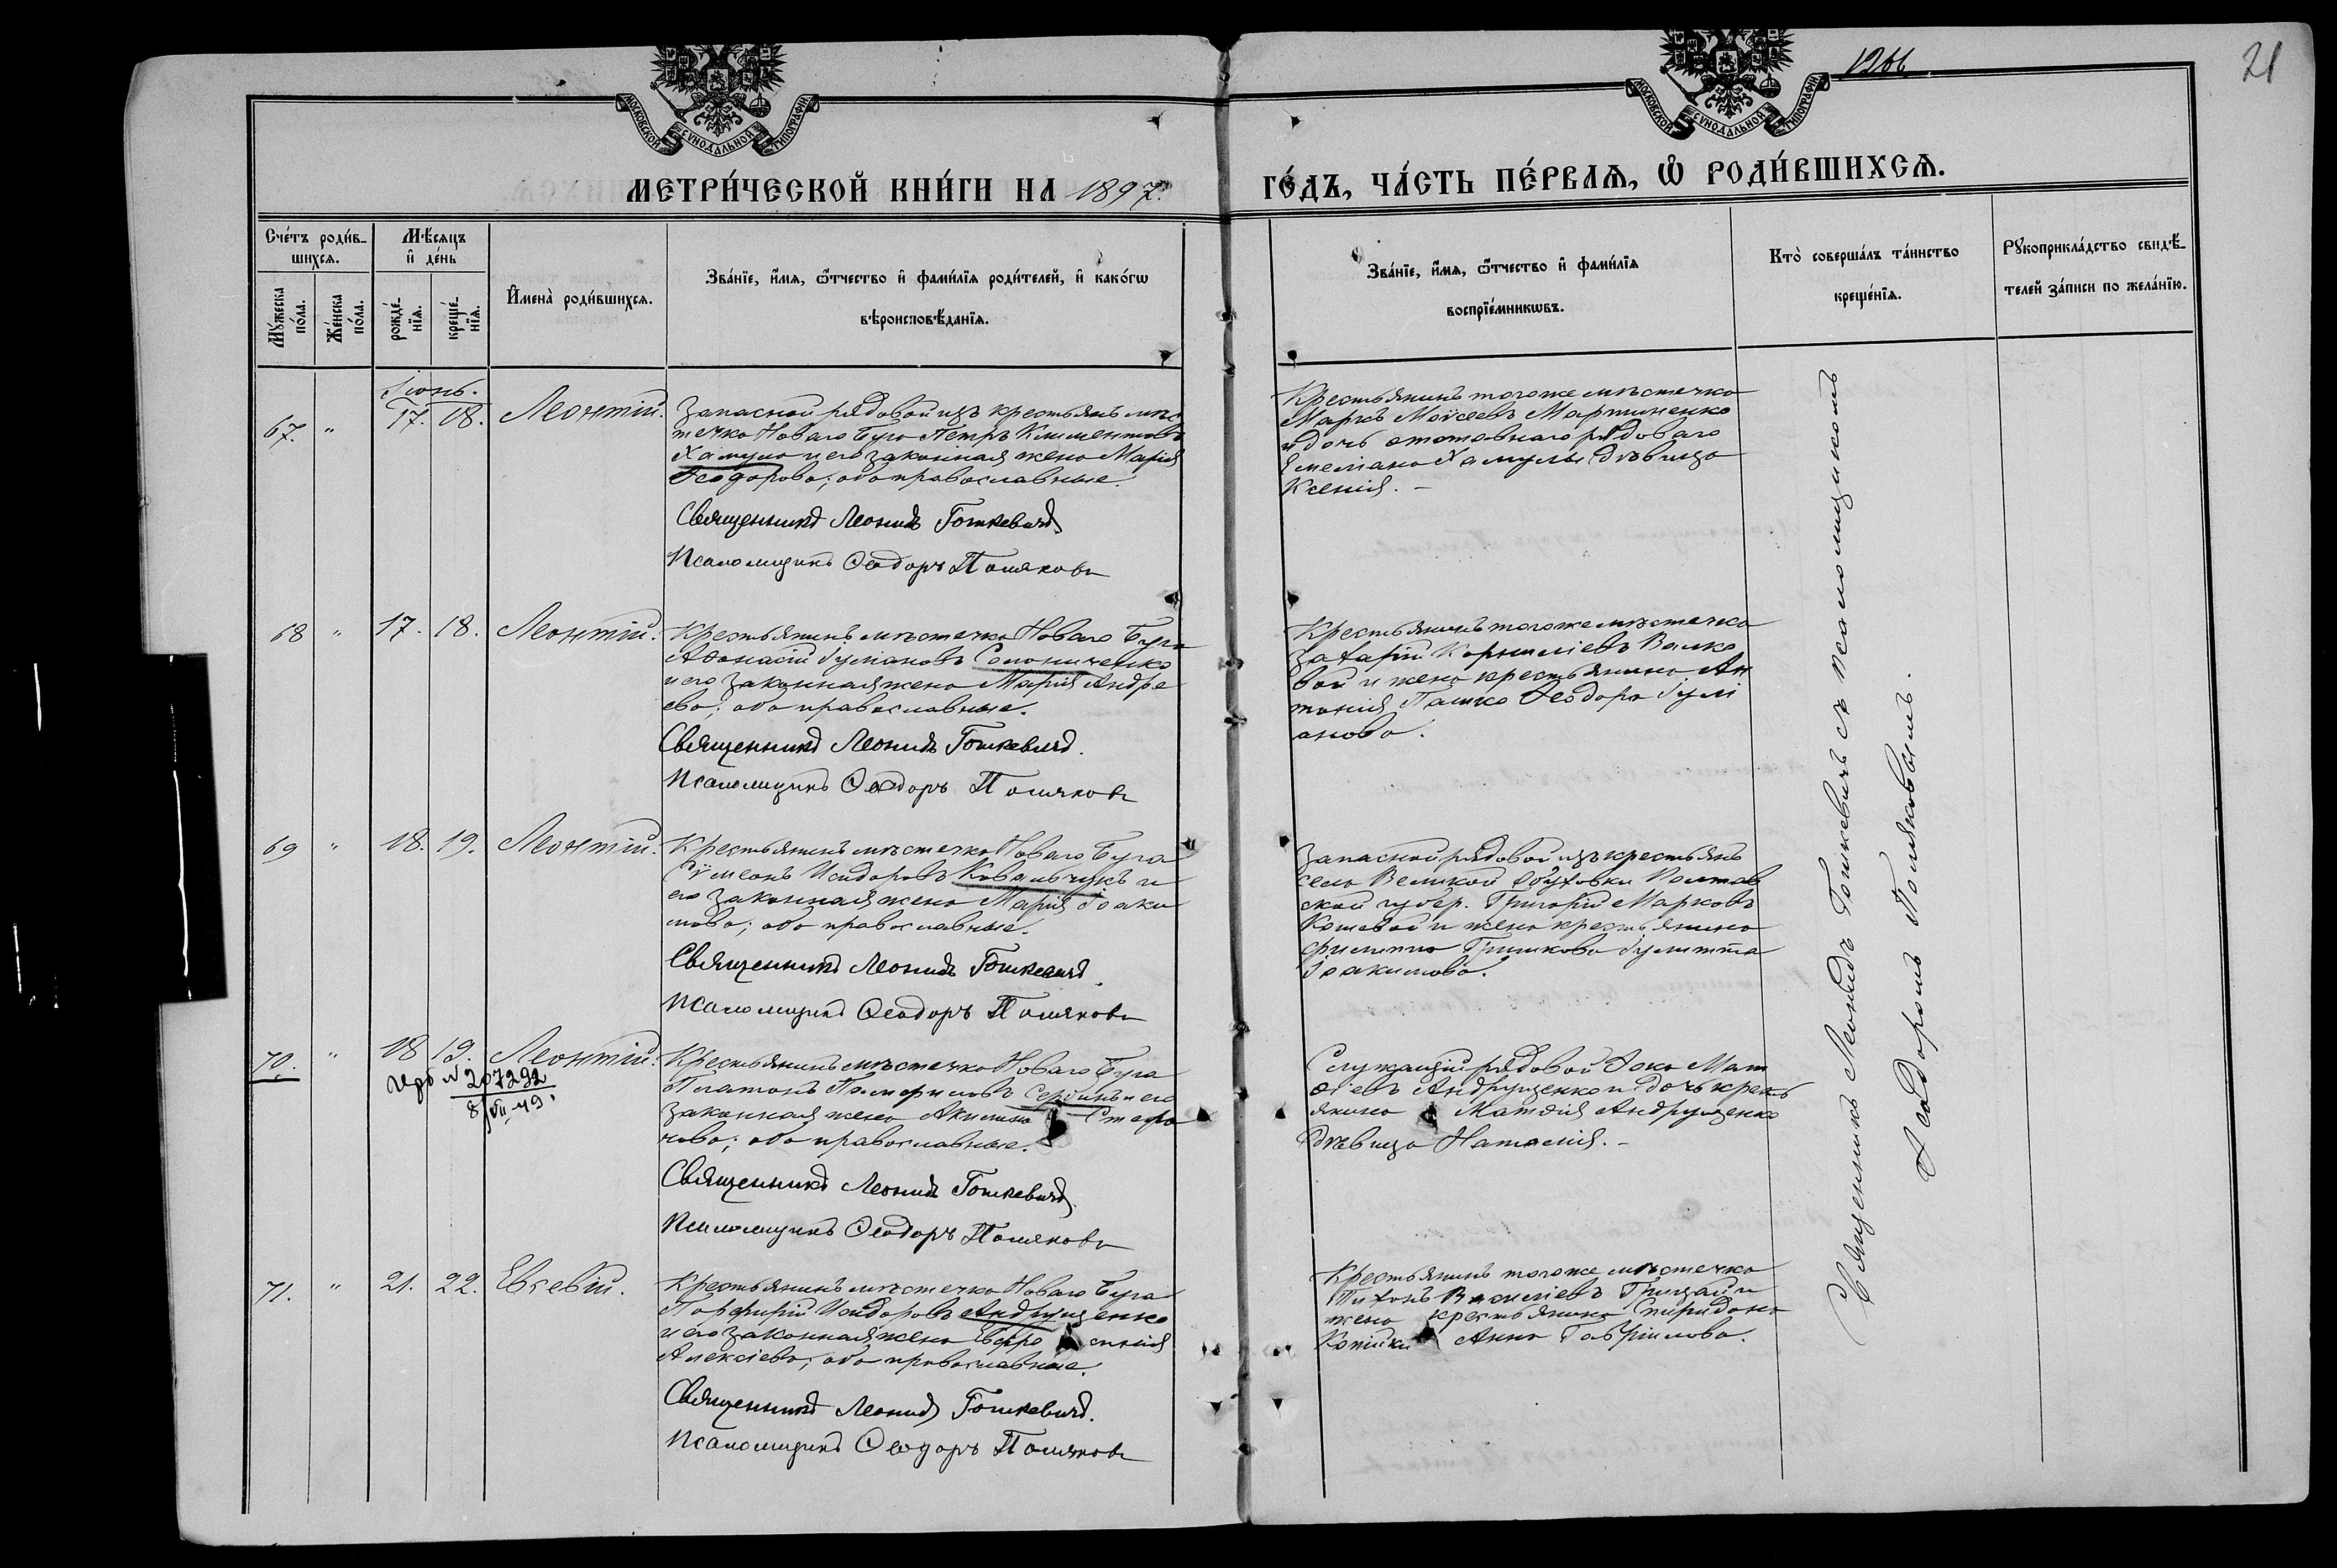 1266
21
МОСКОВСКОЙ СѴНОДАЛЬНОЙ ТИПОГРАФІИ
МОСКОВСКОЙ СѴНОДАЛЬНОЙ ТИПОГРАФІИ
МЕТРИ́ЧЕСКОЙ КНИ́ГИ НА 1897.
ГО́ДЪ, ЧА́СТЬ ПЕ́РВАѦ, Ѡ҆ РОДИ́ВШИХСѦ.
Сче́тъ роди́в-
шихся.
Мѣ́сяцъ
и҆ де́нь
Мꙋ́жеска
по́ла.
Же́нска
по́ла.
рожде́-
нїѧ.
креще́-
нїѧ.
И҆мена̀ роди́вшихсѧ.
Зва́нїе, и҆́мѧ, ѻ҆́тчество и҆ фами́лїѧ роди́телей, и҆ како́гѡ
вѣроисповѣ́данїѧ.
Зва́нїе, и҆́мѧ, ѻ҆́тчество и҆ фами́лїѧ
воспрїе́мникѡвъ.
Кто̀ соверша́лъ та́инство
креще́нїѧ.
Рꙋкоприкла́дство свидѣ́-
телей за́писи по жела́нїю.
Іюнь.
67. " 17. 18. Леонтій.
Запасной рядовой изъ крестьянъ мѣс
течка Новаго Буга Петръ Климентовъ
Хамула и его законная жена Марія
Ѳеодорова; оба православные.
Священникъ Леонидъ Гошкевичъ
Псаломщикъ Ѳеодоръ Поляковъ
Крестьянинъ тогоже мѣстечка
Маркъ Моѵсеевъ Мартиненко
и дочь отставнаго рядоваго
Емеліана Хамулы дѣвица
Ксенія. –
68 " 17. 18. Леонтій.
Крестьянинъ мѣстечка Новаго Буга
Аѳанасій Іуліановъ Солониченко
и его законная жена Марія Андре
ева; оба православные.
Священникъ Леонидъ Гошкевичъ.
Псаломщикъ Ѳеодоръ Поляковъ
Крестьянинъ тогоже мѣстечка
Захарій Корниліевъ Волко
вой и жена крестьянина Ан
тонія Пашко Ѳеодора Іулі
анова.
69 " 18. 19. Леонтій.
Крестьянинъ мѣстечка Новаго Буга
Сѵмеонъ Исидоровъ Ковальчукъ и
его законная жена Марія Іоаки
мова; оба православные.
Священникъ Леонидъ Гошкевичъ.
Псаломщикъ Ѳеодоръ Поляковъ
Запасной рядовой изъ крестьянъ
села Великой Обуховки Полтав
ской губер. Григорій Марковъ
Кошевой и жена крестьянина
Филиппа Гришкова Іулитта
Іоакимова.
70. " 18 19. Леонтій.
№ 207292
8/VII-49.
Крестьянинъ мѣстечка Новаго Буга
Платонъ Памфиловъ Сербинъ и его
законная жена Акилина Стефа
нова; оба православные.
Священникъ Леонидъ Гошкевичъ.
Псаломщикъ Ѳеодоръ Поляковъ
Служащій рядовой Фока Мат
ѳіевъ Андрущенко и дочь кресть
янина Матѳія Андрущенко
дѣвица Наталія. –
71. " 21. 22. Евсевій.
Крестьянинъ мѣстечка Новаго Буга
Порфирій Исидоровъ Андрущенко
и его законная жена Евфросинія
Алексіева; оба православные.
Священникъ Леонидъ Гошкевичъ.
Псаломщикъ Ѳеодоръ Поляковъ
Крестьянинъ тогоже мѣстечка
Тихонъ Василіевъ Грицай и
жена крестьянина Спиридона
Копійки Анна Гавріилова.
Священникъ Леонидъ Гошкевичъ съ псаломщикомъ
Ѳеодоромъ Поляковымъ.